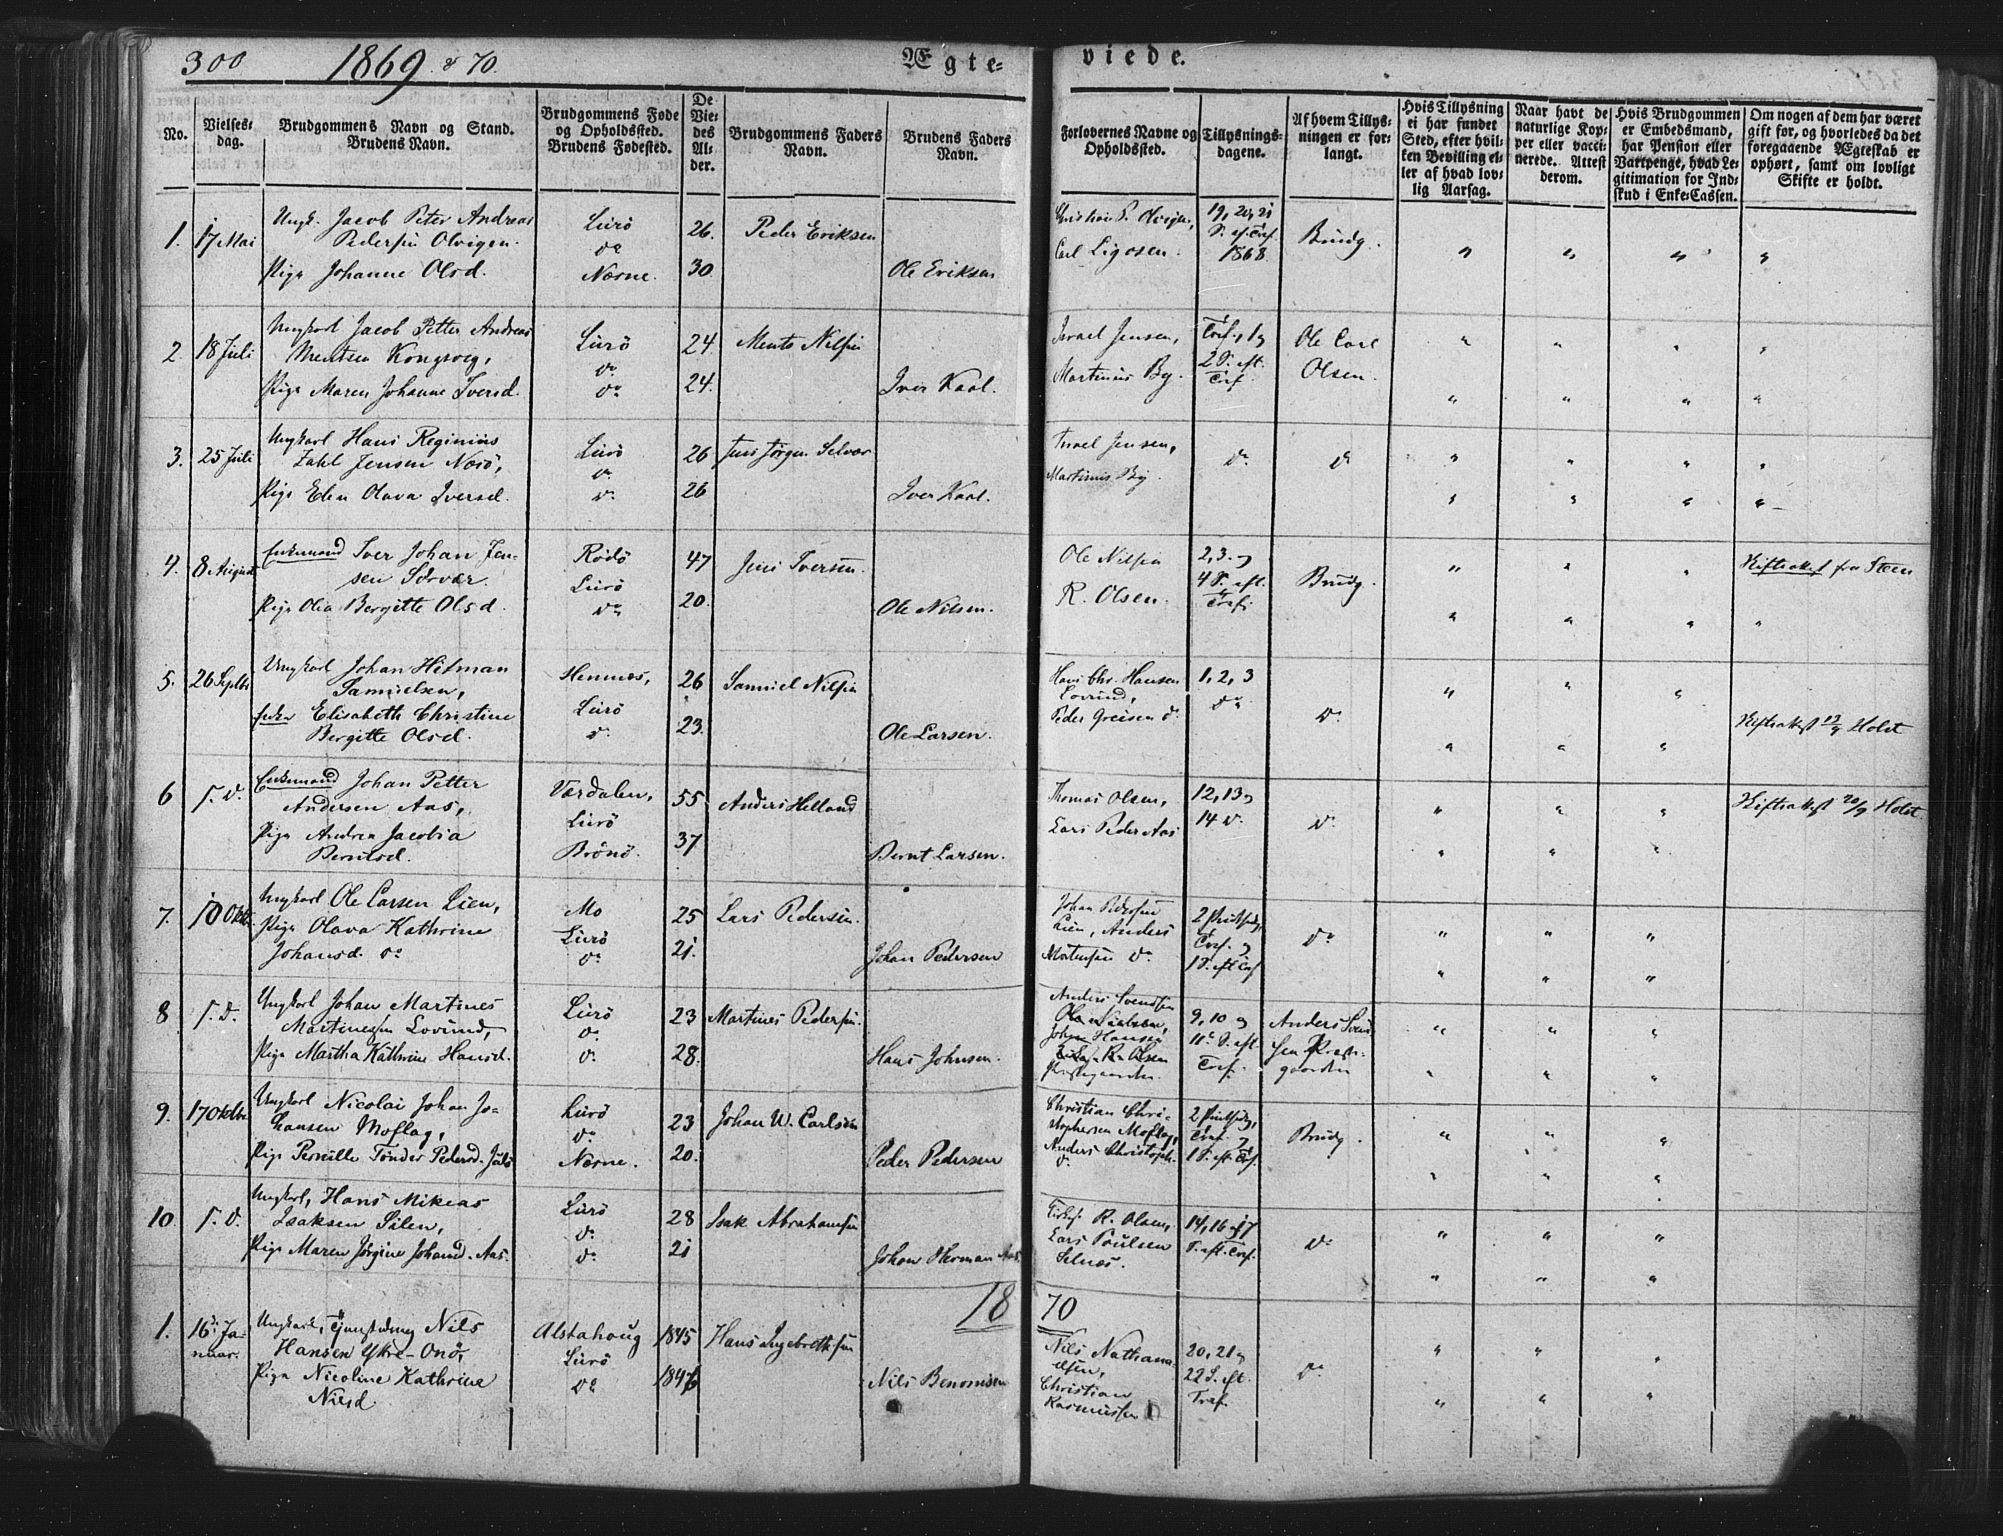 300 1869 & 70. Ægte= viede.
No.
Vielses=
dag.
Brudgommens Navn og Stand.
Brudens Navn.
Brudgommens Føde
og Opholdssted.
Brudens Fødested.
De
Vie=
des
Al=
der.
Brudgommens Faders
Navn.
Brudens Faders
Navn.
Forlovernes Navne og
Opholdssted.
Tillysnings=
dagene.
Af hvem Tillys=
ningen er for=
langt.
Hvis Tillysning
ei har fundet
Sted, efter hvil=
ken Bevilling el=
ler af hvad lov=
lig Aarsag.
Naar havt de
naturlige Kop=
per eller vacci=
nerede. Attest
derom.
Hvis Brudgommen
er Embedsmand,
har Pension eller
Vartpenge, hvad Le=
gitimation for Ind=
skud i Enke=Cassen.
Om nogen af dem har været
gift før, og hvorledes da det
foregaaende Ægteskab er
ophørt, samt om lovligt
Skifte er holdt.
1. 17 Mai
Ungk. Jacob Peter Andreas
Pedersen Olvigen.
Pige Johanne Olsd.
Lurö
do
Næsne.
26.
30
Peder Eriksen
Ole Eriksen
Christian P. Olvigen,
Carl Ligosen.
19, 20, 21
S. ef. Tref.
1868
Brudg.
" " " "
2. 18 Juli
Ungkarl Jacob Petter Andreas
Mentsen Kongsvig,
Pige Maren Johanne Iversd.
Lurö
do
do
24.
24.
Ments Nilsen
Iver Kaal.
Israel Jensen,
Martinus By.
Tref., 1 og
2 S. eft.
Tref.
Ole Carl
Olsen.
" " " "
" " " "
3. 25 Juli
Ungkarl Hans Reginius
Zahl Jensen Næsö,
Pige Elen Olava Iversd.
Lurö
do
do
26
26
Jens Jörgen Selvær
Iver Kaal.
Israel Jensen,
Martinus By
do
do
" " " "
" " " "
4. 8 August
Enkemand Iver Johan Jen-
sen Sörvær.
Pige Olia Bergitte Olsd.
Rödö
Lurö
do
47
20.
Jens Iversen.
Ole Nilsen.
Ole Nilsen
R. Olsen.
2, 3. og
4 S. eft.
Tref.
Brudg.
" " "
Skifteattest fra Steen
" " " "
5. 26 Septbr
Ungkarl Johan Hitman
Samuelsen,
Enke Elisabeth Christine
Bergitte Olsd.
Hemnæs,
Lurö
do
26
23.
Samuel Nilsen
Ole Larsen.
Hans Chr. Hansen
Lovund,
Peder Greisen do
1, 2, 3
do
do
" " "
" " "
Skifteattest 12/9 Holst
6 S. D.
Enkemand Johan Petter
Andersen Aas,
Pige Andrea Jacobia
Berntsd.
Værdalen,
Lurö
Brönö.
55
37
Anders Helland
Bernt Larsen.
Thomas Olsen,
Lars Peder Aas
12, 13 og
14 do
do
" " "
Skifteattest 20/9 Holst
" " "
7. 10 Oktbr
Ungkarl Ole Larsen Lien,
Pige Olava Kathrine
Johansd. do
Mo
Lurö
do
25
21.
Lars Pedersen.
Johan Pedersen
Johan Pedersen
Lien, Anders
Mortensen do
2 Pintsedg,
Tref. og
1 S. eft Tref
do
" " "
" " "
8 S. D.
Ungkarl Johan Martines
Martinessen Lovund,
Pige Martha Kathrine Hansd.
Lurö
do
do
23
28.
Martines Pedersen.
Hans Johnsen.
Anders Svendsen
Johan Hansen
R. Olsen
Præstegaarden.
9, 10 og
11te S. eft.
Tref.
Anders Svend
sen Præste-
gaarden
" " "
" " "
9. 17 Oktbr
Ungkarl Nicolai Johan Jo-
hansen Moflag,
Pige Pernille Tönder Pedersd.
Lurö
do
Næsne.
23
20.
Johan W. Carlsen
Peder Pedersen
Christian Chri-
stophersen Moflag,
Anders Christoph.
do
2 Pintsedg,
Tref. og
1 S. eft Tref.
Brudg.
" " "
" " "
10 S. D.
Ungkarl, Hans Mikeas
Isaksen Silen,
Pige Maren Jörgine Johansd. Aas.
Lurö
do
do
28
21
Isak Abrahamsen
Johan Herman Aas.
R. Olsen,
Lars Poulsen
Selnæs.
14, 16 og 17
S. eft. Tref.
do
" " "
" " "
18 70
1. 16de Ja-
nuar.
Ungkarl, Nils
Hansen Ytre-Onö,
Pige Nicoline Kathrine
Nilsd.
Alstahoug
Lurö
do
1845
1846
Hans Ingebretsen
Nils Benonisen
Nils Nathana-
elsen,
Christian
Rasmussen
20, 21 og
22 S. eft.
Tref.
do
" " "
" " "